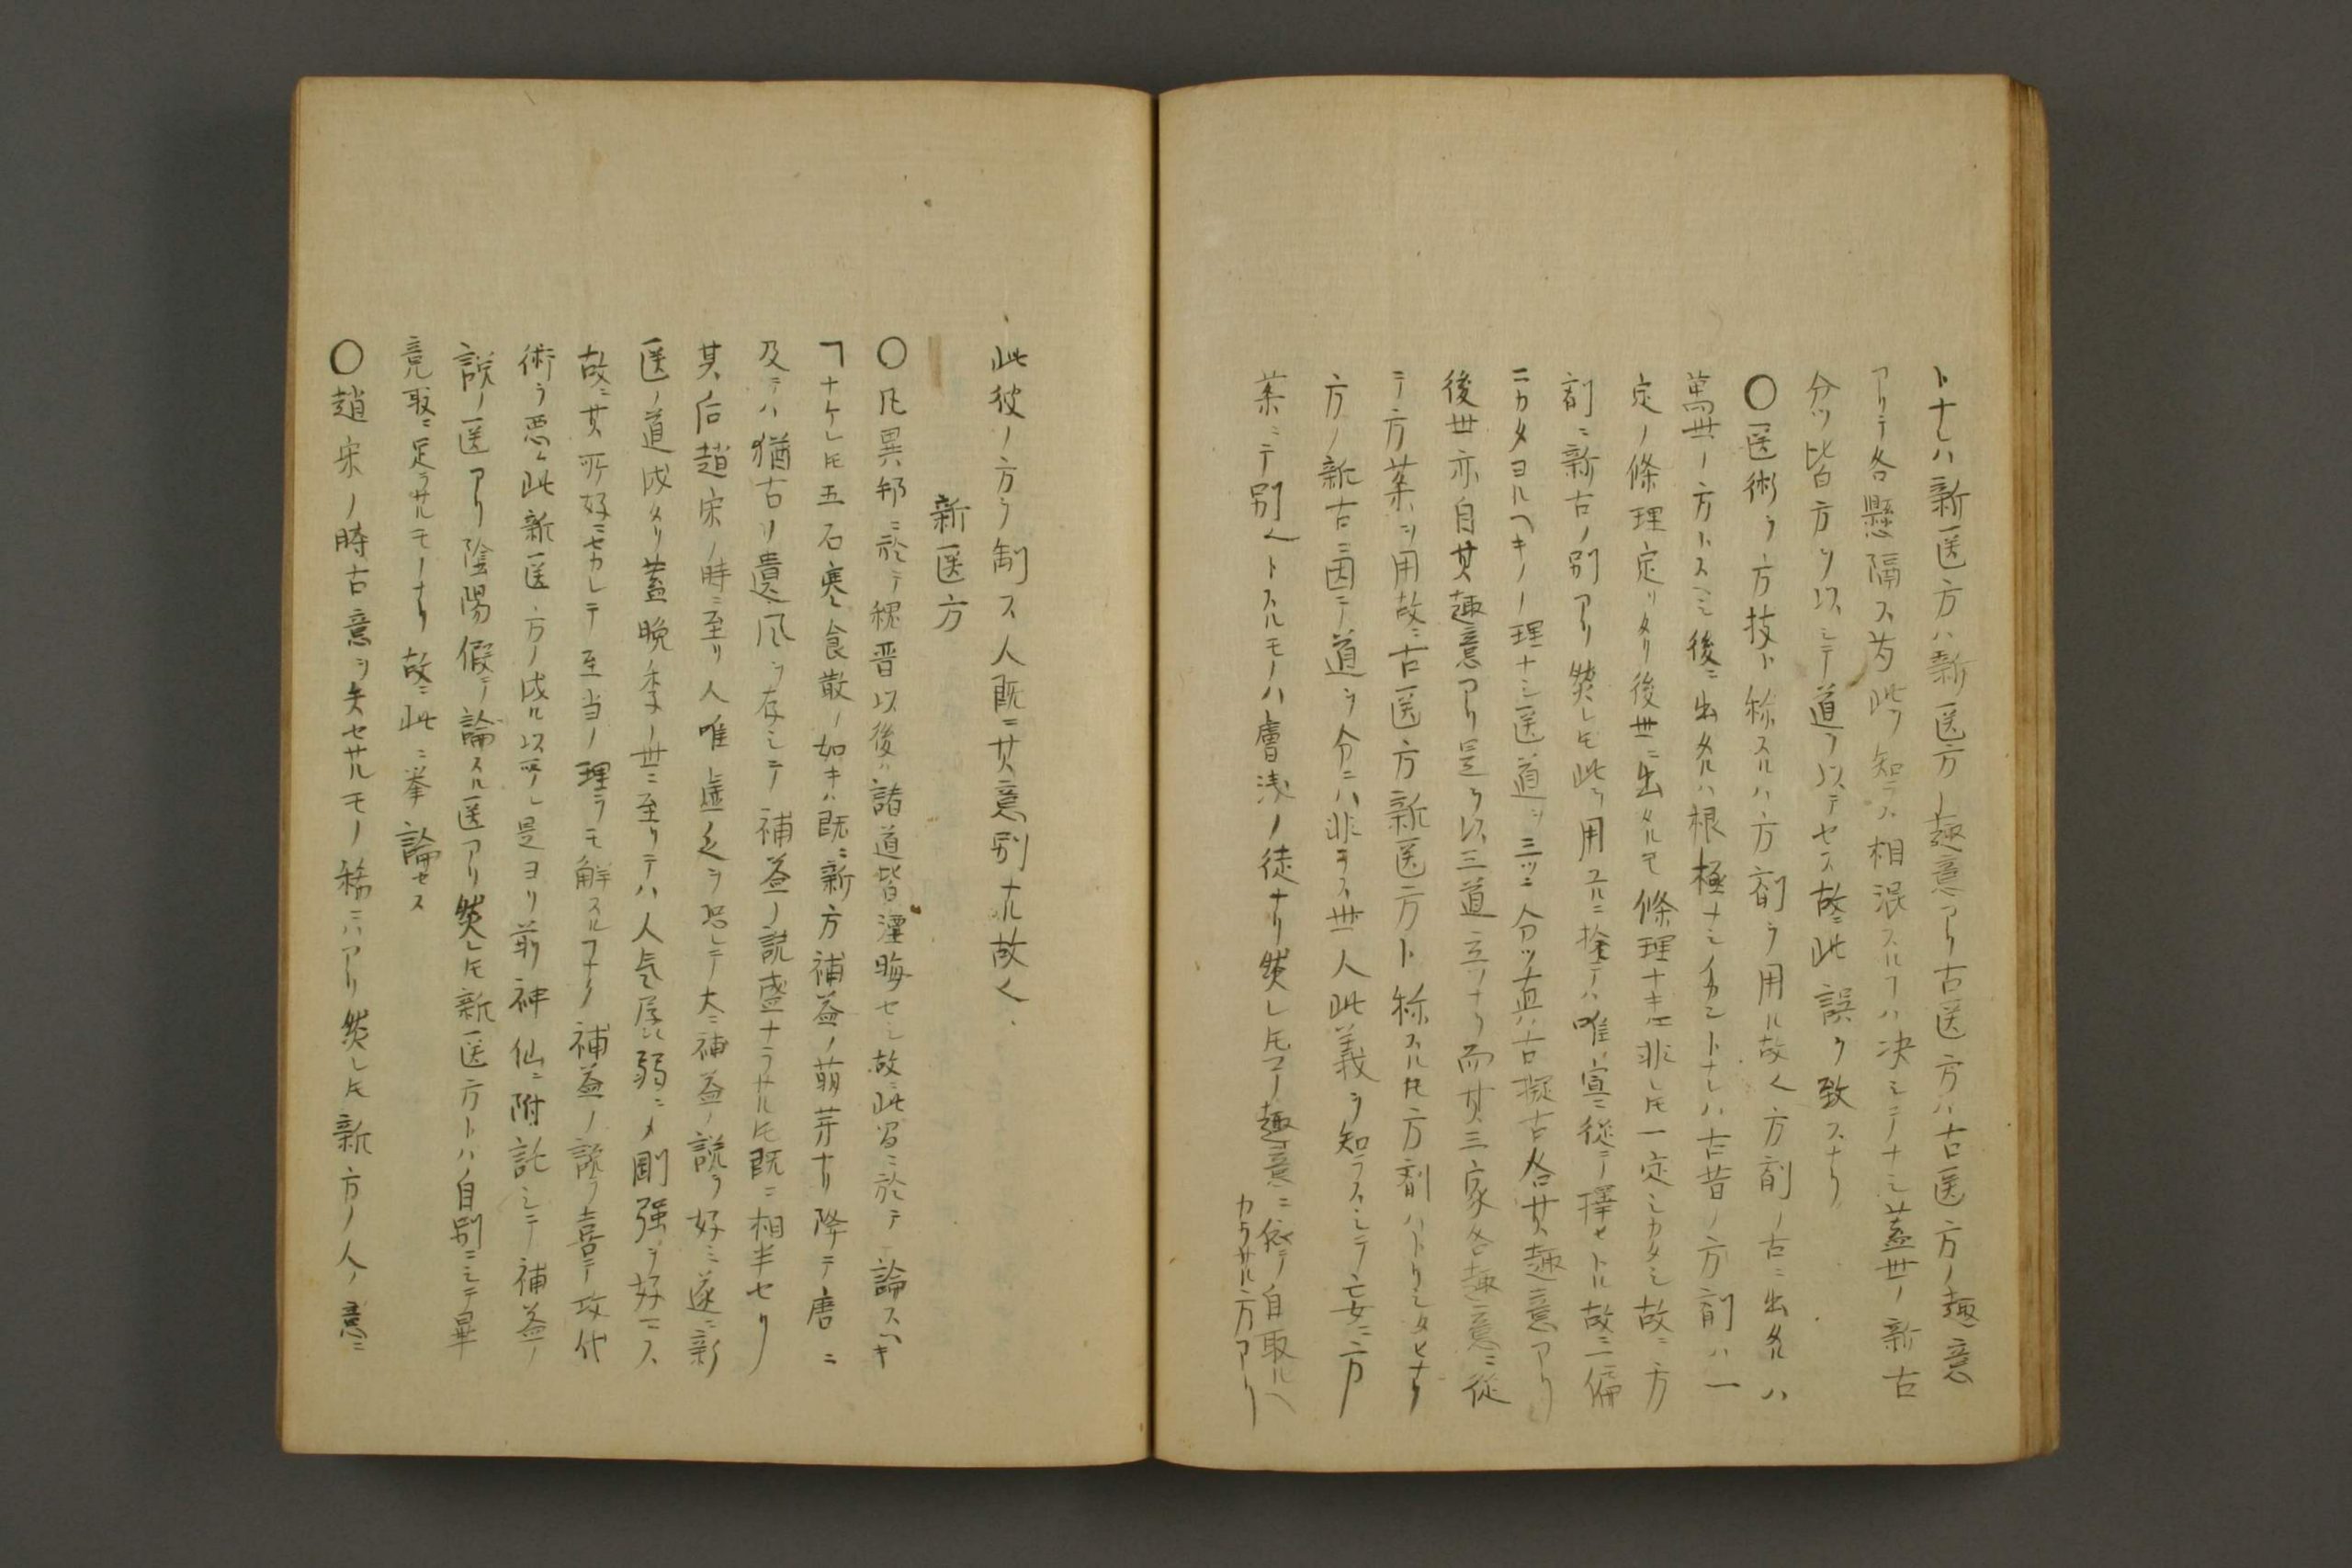 トナレハ新医方ハ新医方ノ趣意アリ古医方ハ古医方ノ趣意
アリテ各懸隔ス为此ヲ知ラス相混スルヿハ决シテナシ蓋世ノ新古
分ツ皆方ヲ以シテ道ヲ以テセス故ニ此誤ヲ致スナリ
〇医術ヲ方技ト称スルハ方剤ヲ用ル故く方剤ノ古ニ出タルハ
萬世ノ方トスヘシ後ニ出タルハ根極ナシ何トナレハ古昔ノ方剤ハ一
定ノ條理定リタリ後世ニ出タルモ條理ナキニ非レ𪜈一定シカタシ故ニ方
剤ニ新古ノ別アリ然レ𪜈此ヲ用ユルニ於テハ唯宜ニ従テ擇ヤトル故ニ偏
ニカタヨルヘキノ理ナシ医道ヲ三ツニ分ツ真古擬古各其趣意アリ
後世亦自其趣意アリ是ヲ以三道立ツナリ而其三家各趣意ニ従
テ方菜ヲ用故ニ古医方新医方ト称スル𪜈方剤ハトリシタヒナリ
方ノ新古ニ因テ道ヲ分ニハ非ラス世人此義ヲ知ラスシテ妄ニ方
菜ニテ別くトスルモノハ膚浅ノ徒ナリ然レ𪜈ソノ趣意ニ依テ自取ルヘ
カラサル方アリ
此彼ノ方ヲ制ス人既ニ其意別ナル故く
新医方
〇凡異邦ニ於テ魏晋以後ハ諸道皆湮晦セシ故ニ此習ニ於テ論スヘキ
ヿナケレ𪜈五石寒食散ノ如キハ既ニ新方補益ノ萌芽ナリ降テ唐ニ
及テハ猶古ノ遺風ヲ存シテ補益ノ説盛ナラサレ𪜈既ニ相半セリ
其后趙宋ノ時ニ至リ人唯虚乏ヲ恐レテ大ニ補益ノ説ヲ好ミ遂ニ新
医ノ道成メリ蓋晩季ノ世ニ至リテハ人気孱弱ニメ剛强ヲ好マス
故ニ其所好ニセカレテ至当ノ理ヲモ解スルヿナク補益ノ説ヲ喜テ攻伐
術ヲ悪ム此新医方ノ成ル以所レ是ヨリ前神仙ニ附託シテ補益ノ
説ノ医アリ陰陽假テ論スル医アリ然レ𪜈新医方トハ自別ニシテ畢
竟取ニ足ラサルモノナリ故ニ此ニ挙論セス
〇趙宋ノ時古意ヲ失セサルモノ稀ニハアリ然レ𪜈新方ノ人ノ意ニ